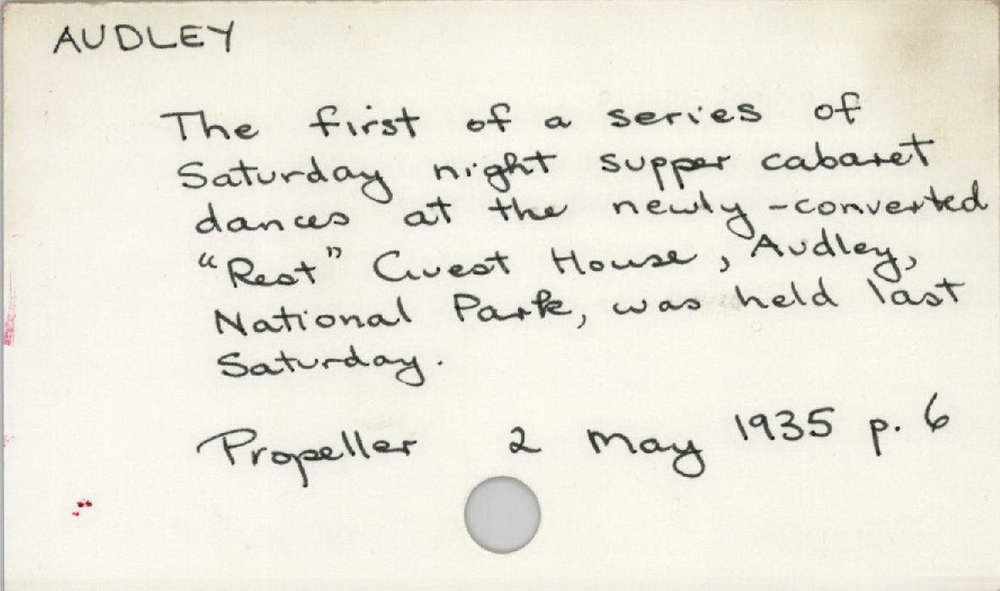 AUDLEY
The first of a series of
Saturday night supper cabaret
dances at the newly-converted
"Rest" Guest House, Audley,
National Park, was held last
Saturday.
Propeller 2 May 1935 p. 6